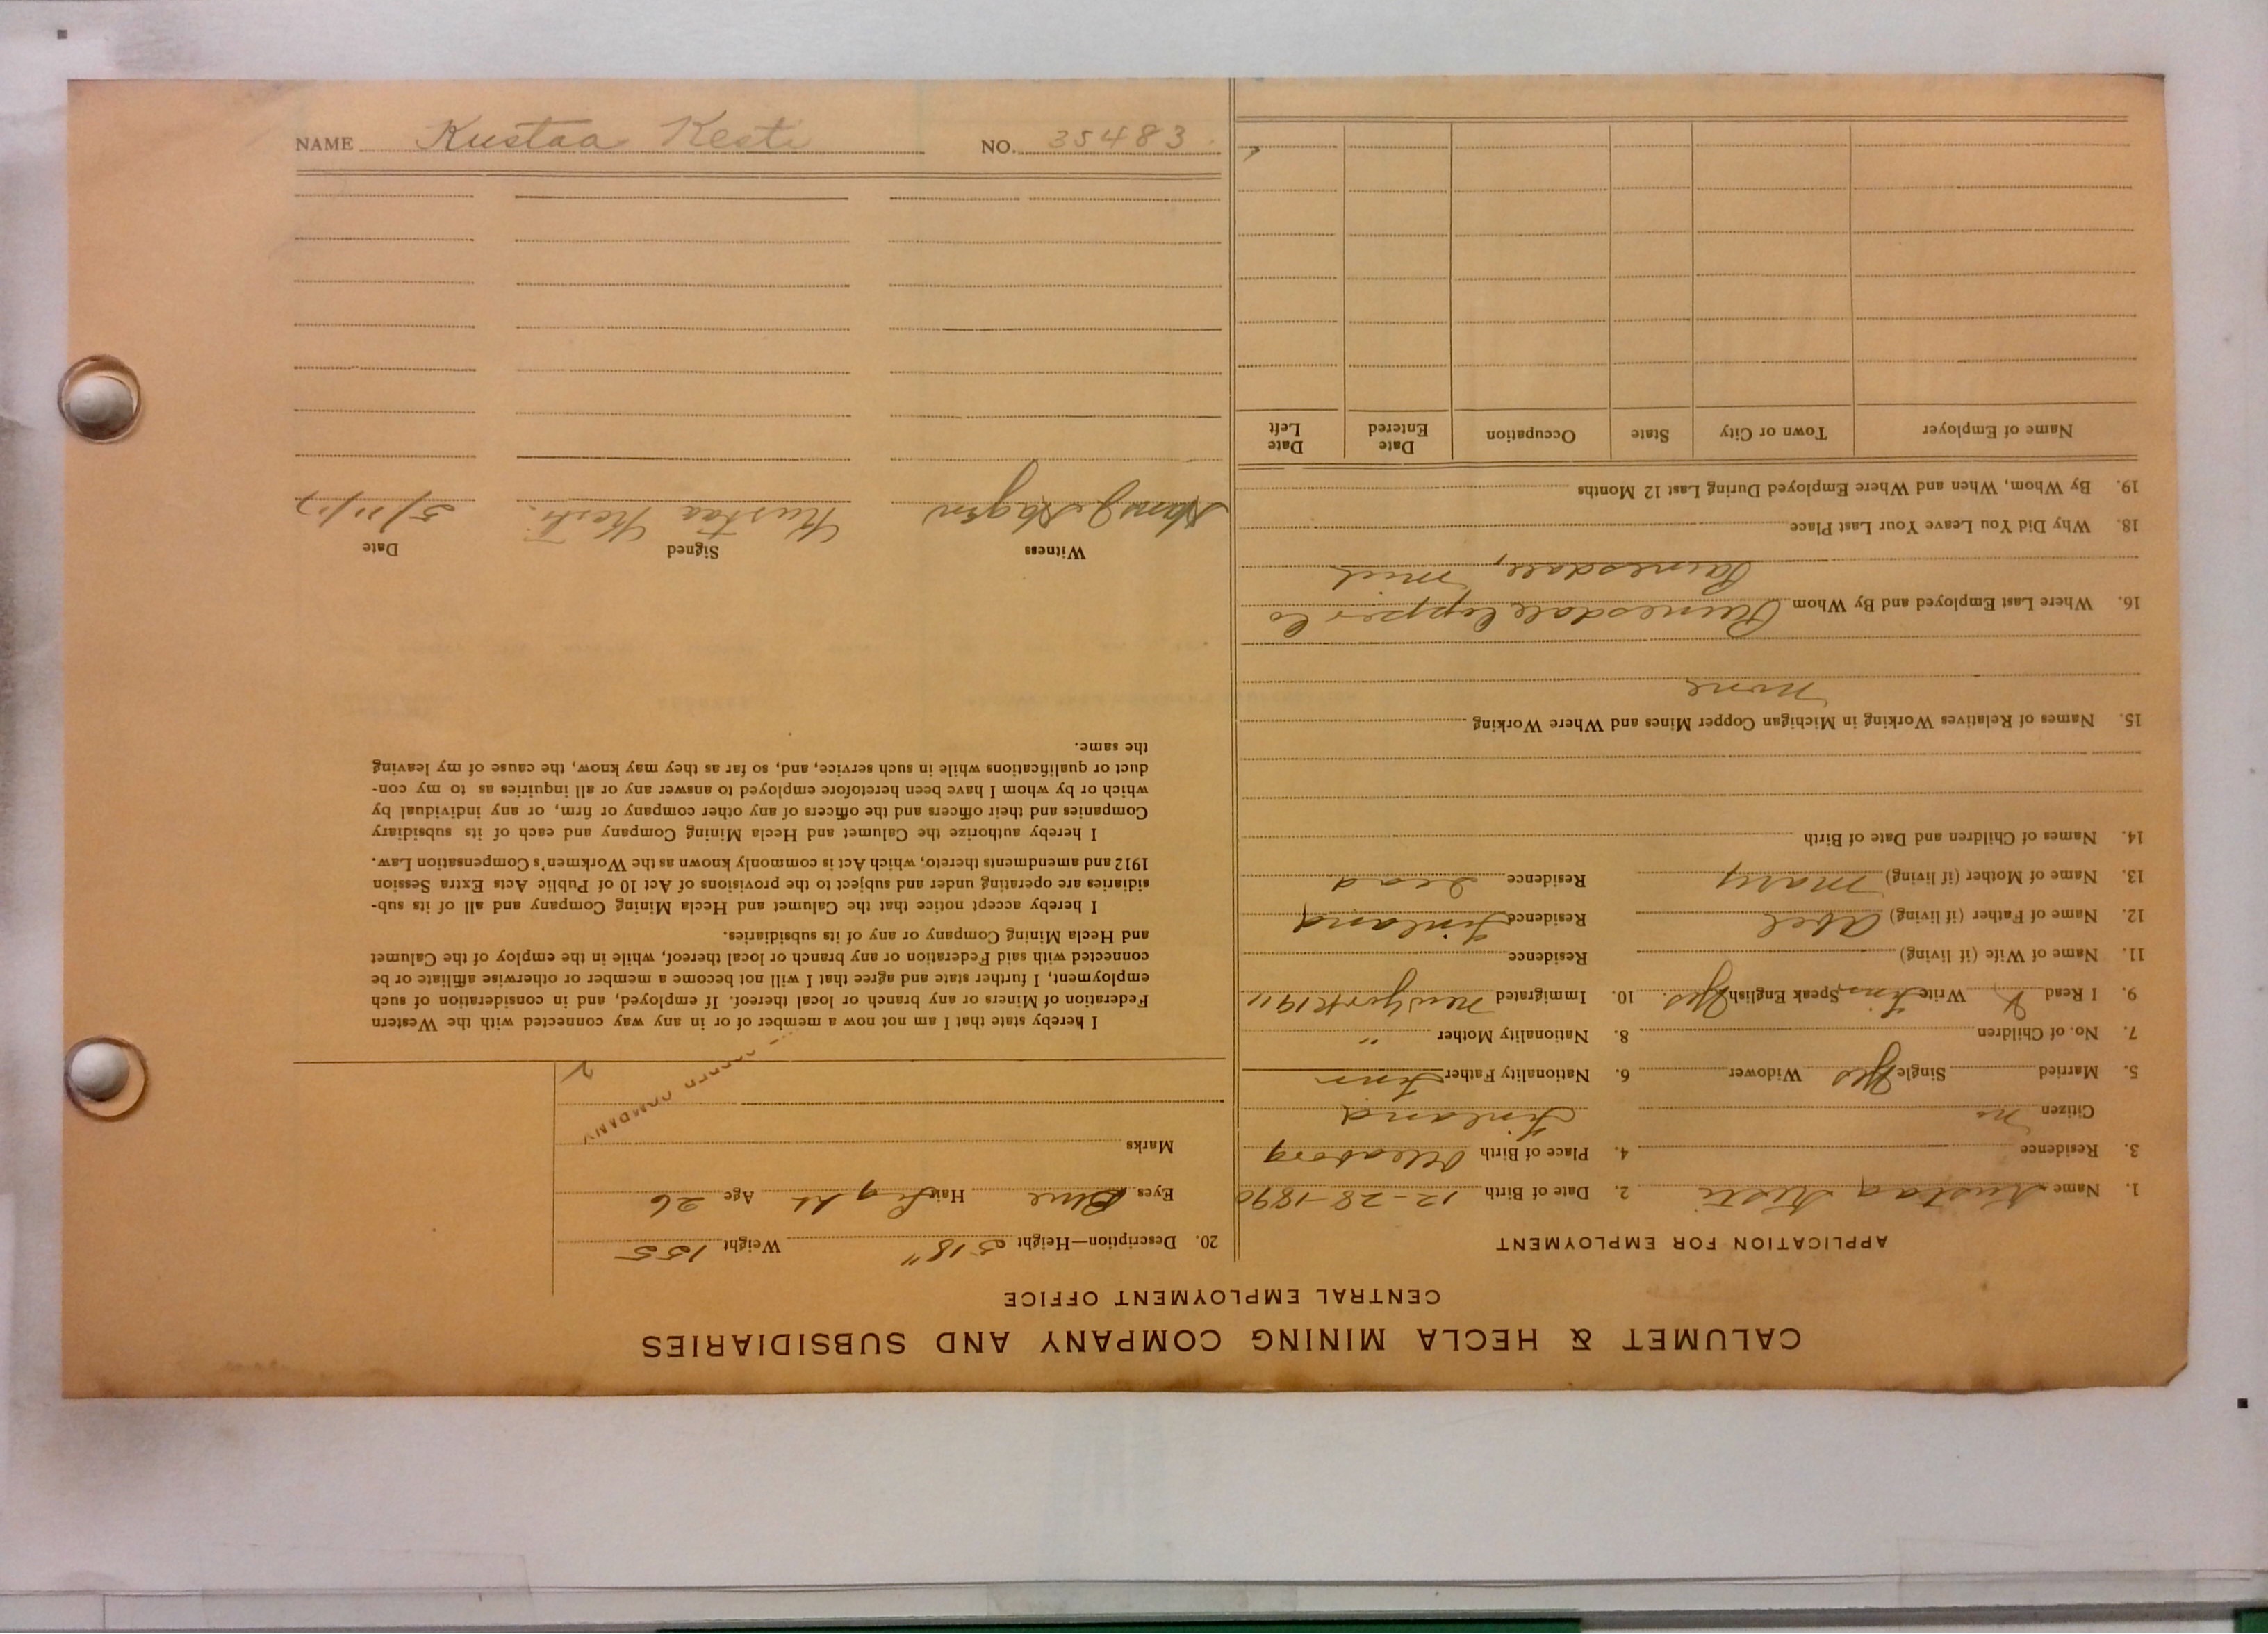 CALUMET & HECLA MINING COMPANY AND SUBSIDIARIES
CENTRAL EMPLOYMENT OFFICE
APPLICATION FOR EMPLOYMENT
1. Name Kustaa Kesti 2. Date of Birth 12-28-1890
3. Residence 4. Place of Birth Uleaborg
Citizen no Finland
5. Married Single Yes Widower 6. Nationality Father Finn
7. No. of Children 8. Nationality Mother "
9. I Read & Write Finn Speak English Yes. 10. Immigrated New York 1911
11. Name of Wife (if living) Residence
12. Name of Father (if living) Abel Residence Finland
13. Name of Mother (if living) Mary Residence Dead
14. Names of Children and Date of Birth
15. Names of Relatives Working in Michigan Copper Mines and Where Working
None
16. Where Last Employed and By Whom Painesdale Copper Co
Painesdale, Mich
18. Why Did You Leave Your Last Place
19. By Whom, When and Where Employed During Last 12 Months
Name of Employer Town or City State Occupation Date Entered Date Left
20. Description—Height 5'8" Weight 155
Eyes Blue Hair Light Age 26
Marks
COPPER COMPANY
I hereby state that I am not now a member of or in any way connected with the Western
Federation of Miners or any branch or local thereof. If employed, and in consideration of such
employment, I further state and agree that I will not become a member or otherwise affiliate or be
connected with said Federation or any branch or local thereof, while in the employ of the Calumet
and Hecla Mining Company or any of its subsidiaries.
I hereby accept notice that the Calumet and Hecla Mining Company and all of its sub-
sidiaries are operating under and subject to the provisions of Act 10 of Public Acts Extra Session
1912 and amendments thereto, which Act is commonly known as the Workmen's Compensation Law.
I hereby authorize the Calumet and Hecla Mining Company and each of its subsidiary
Companies and their officers and the officers of any other company or firm, or any individual by
which or by whom I have been heretofore employed to answer any or all inquiries as to my con-
duct or qualifications while in such service, and, so far as they may know, the cause of my leaving
the same.
Witness Signed Date
Hans J. Hagen Kustaa Kesti. 5/11/17
NAME Kustaa Kesti NO. 35483